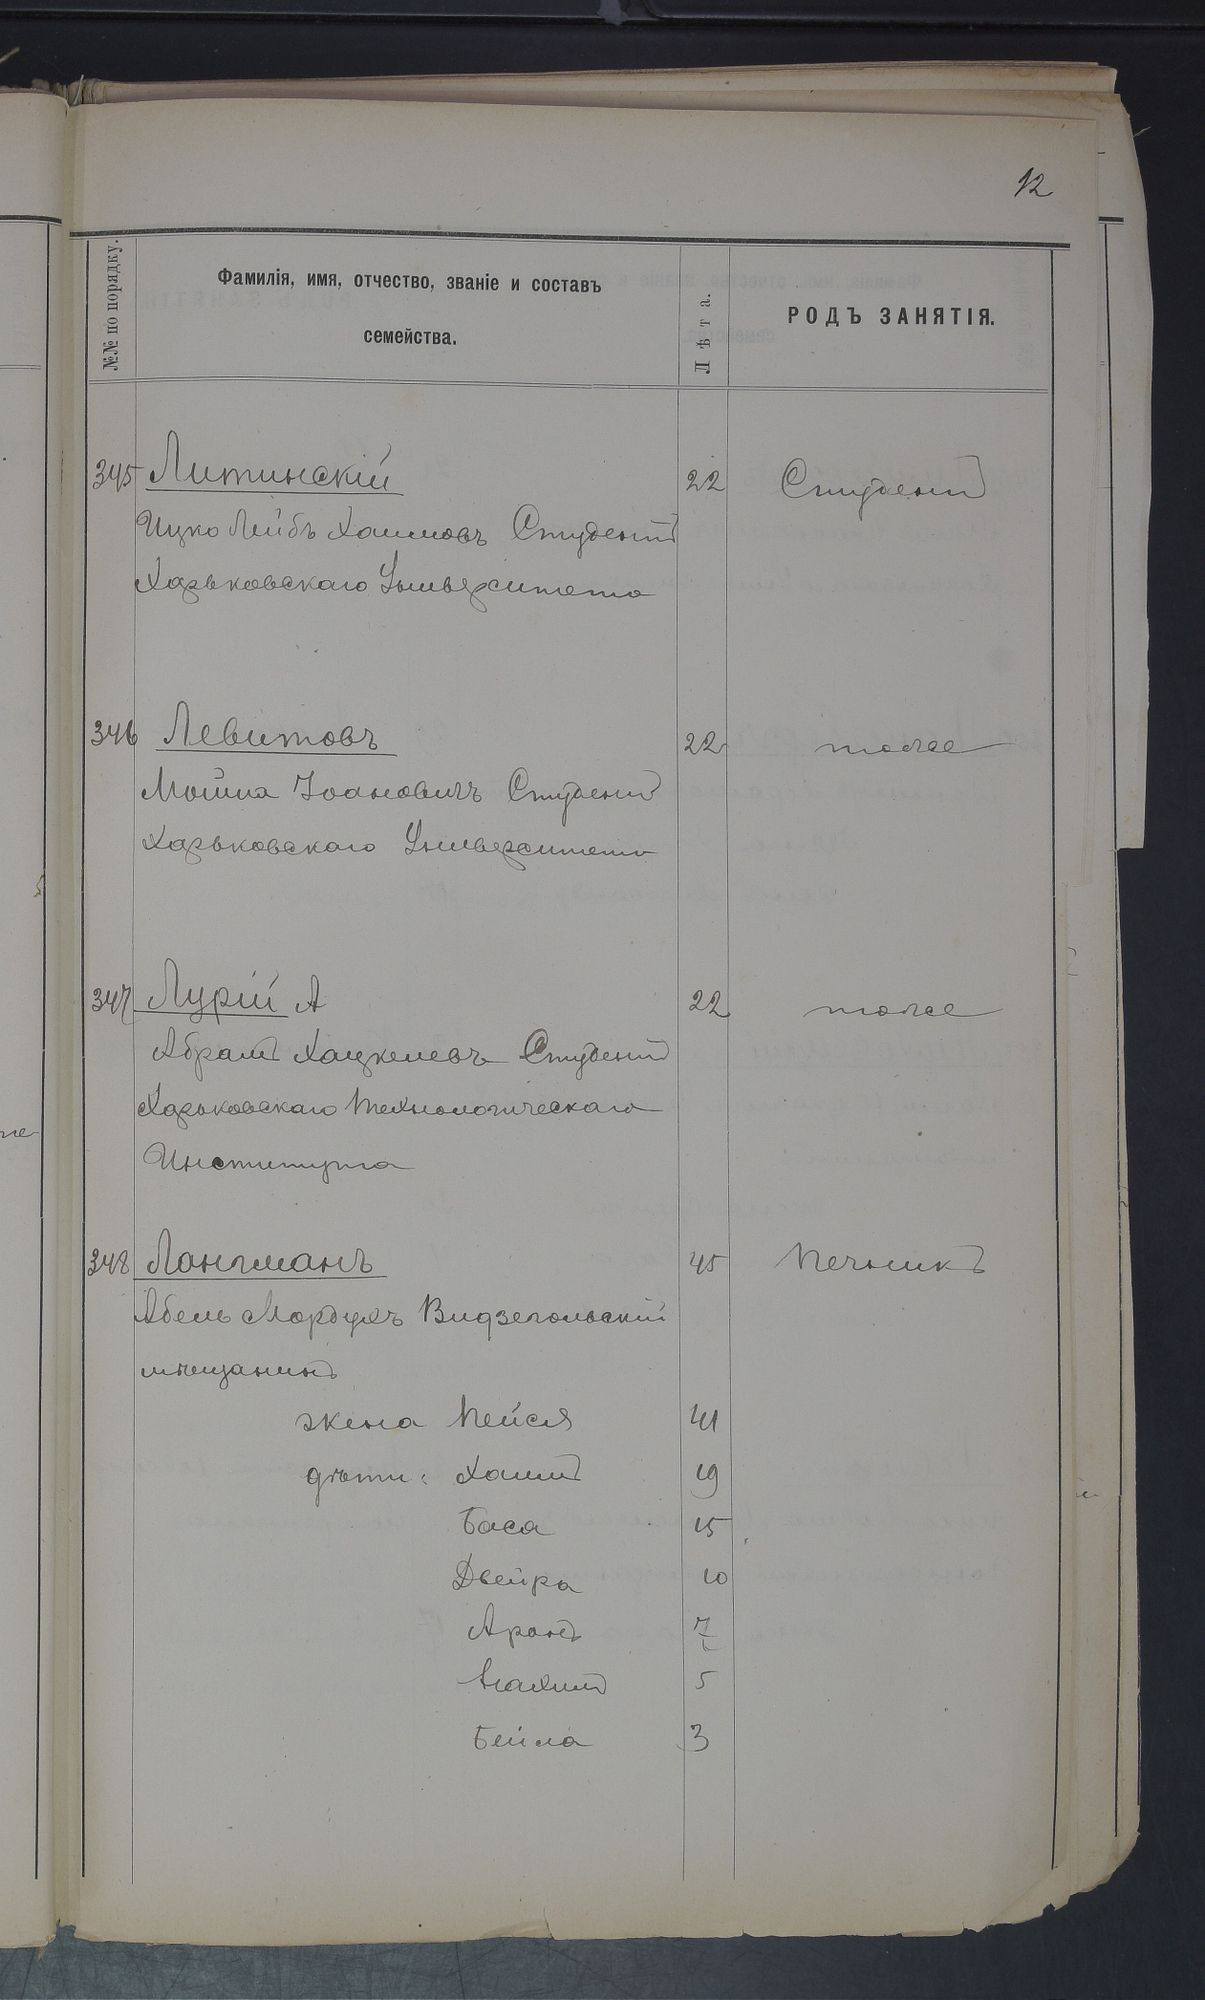 12
№№ по порядку.
Фамилія, имя, отчество, званіе и составъ
семейства.
Лѣта.
РОДЪ ЗАНЯТІЯ.
345 Литинскій 22 Студентъ
Ицко Лейбъ Хаимовъ Студентъ
Харьковскаго Университета
346 Левитовъ 22 тоже
Мойша Іоановичъ Студентъ
Харьковскаго Университета
347 Лурій А 22 тоже
Абрамъ Хацкелевъ Студентъ
Харьковскаго Технологическаго
Института
348 Лангманъ 45 Печникъ
Абель Мордухъ Видзегольскій
мѣщанинъ
жена Пейся 41
дѣти: Хаимъ 19
Баса 15
Двейра 10
Аронъ 7
5
Бейла 3